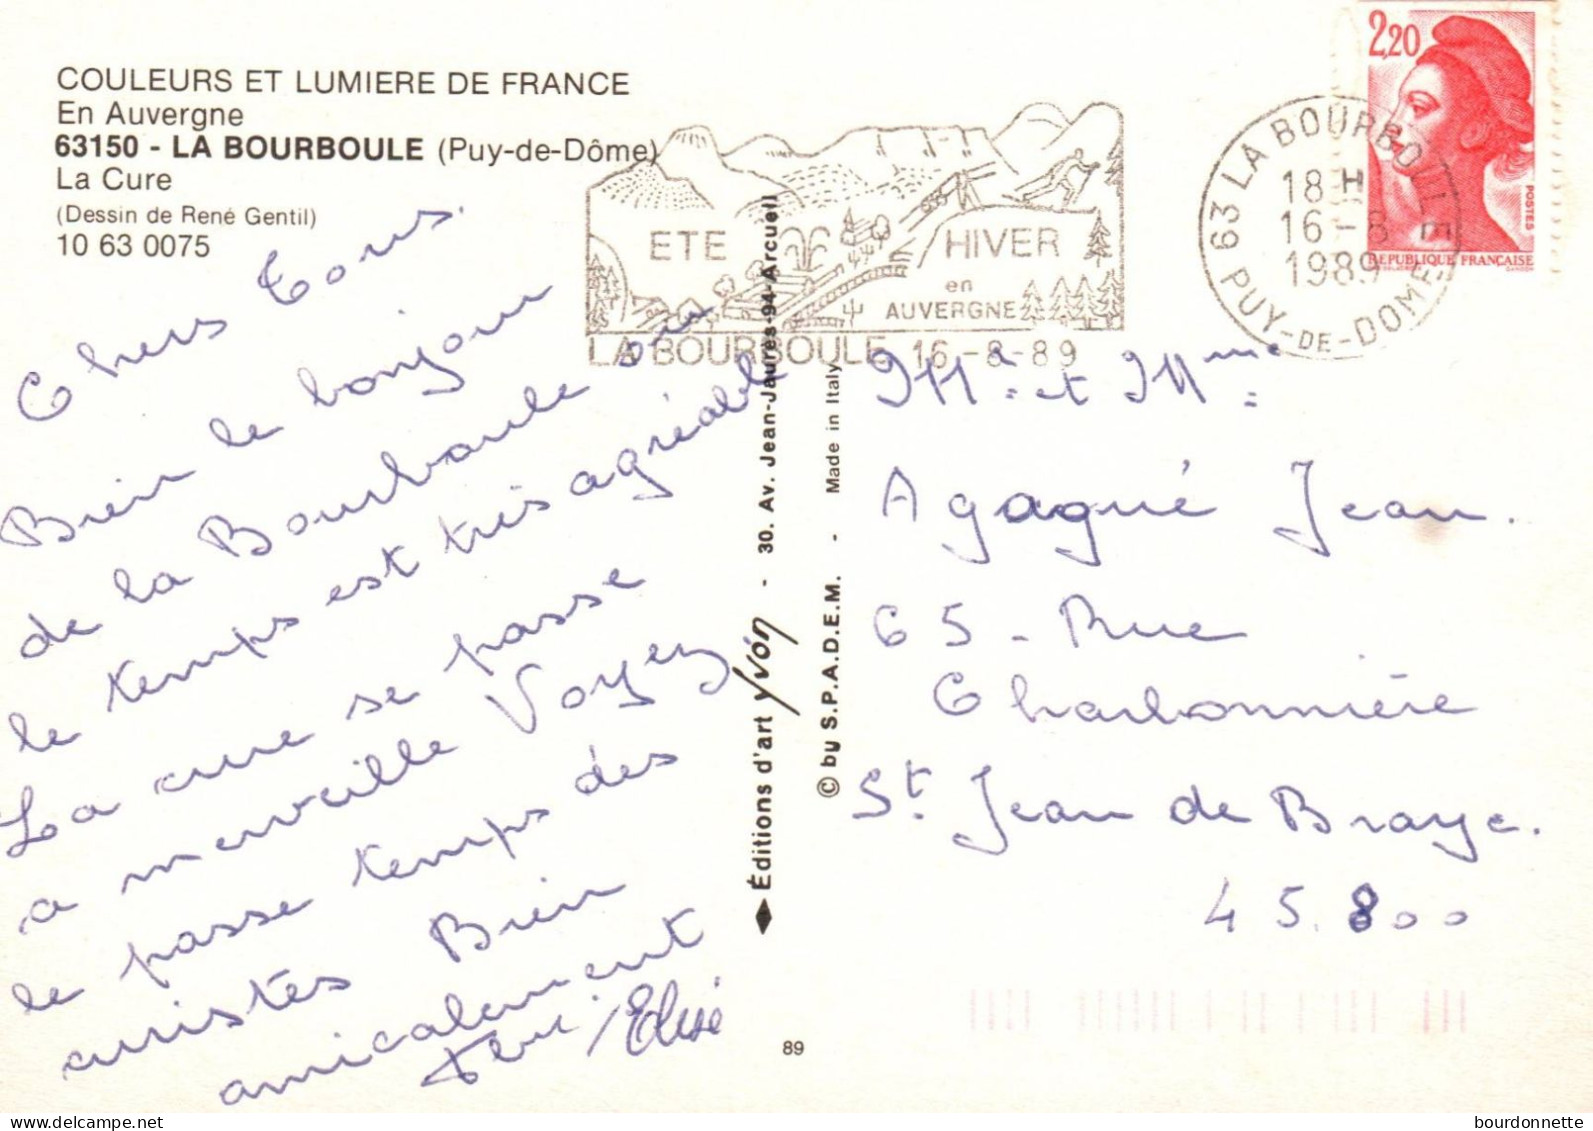 COULEURS ET LUMIERE DE FRANCE
En Auvergne
63150 - LA BOURBOULE (Puy-de-Dôme)
La Cure
(Dessin de René Gentil)
10 63 0075
Chers Tous.
Bien le bonjour
de la Bourboule où
le temps est très agréable
La cure se passe
a merveille Voyez
le passe temps des
curistes Bien
amicalement
Elisé
ETE
HIVER
en
AUVERGNE
LA BOURBOULE 16-8-89
63 LA BOURBOULE
18 H
16-8
1989
PUY-DE-DOME
2,20
POSTES
REPUBLIQUE FRANÇAISE
Éditions d'art Yvon - 30. Av. Jean-Jaurès-94-Arcueil
© by S.P.A.D.E.M. - Made in Italy
Mr et Mme
Agagué Jean.
65 - Rue
Charbonnière
St. Jean de Braye.
45.800
89
bourdonnette